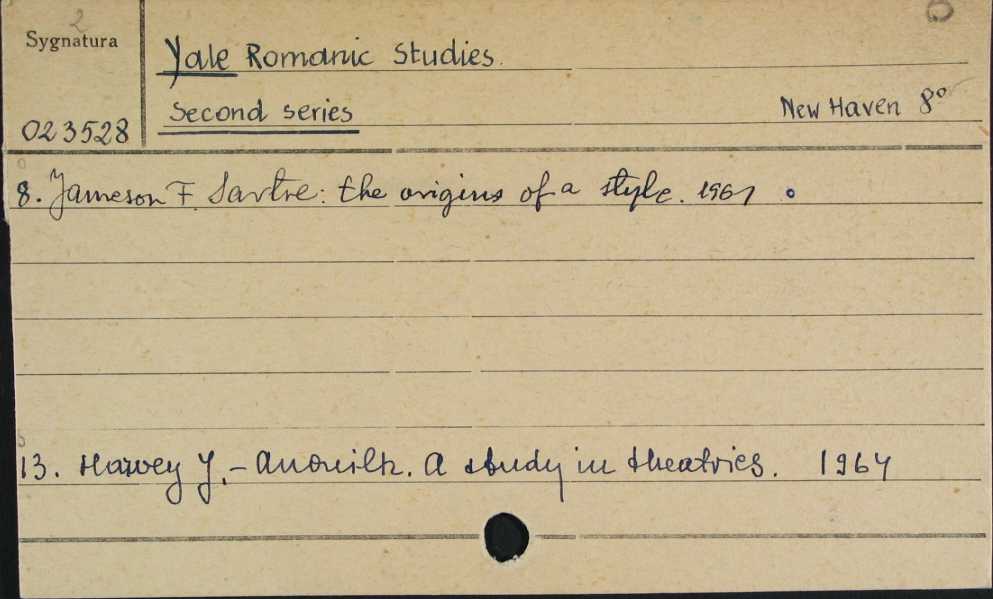 2
Sygnatura
Yale Romanic Studies.
Second series
New Haven 8°
023528
8. Jameson F. Sartre: the origins of a style. 1961
13. Harvey J. – Anouilh. A study in theatrics. 1964